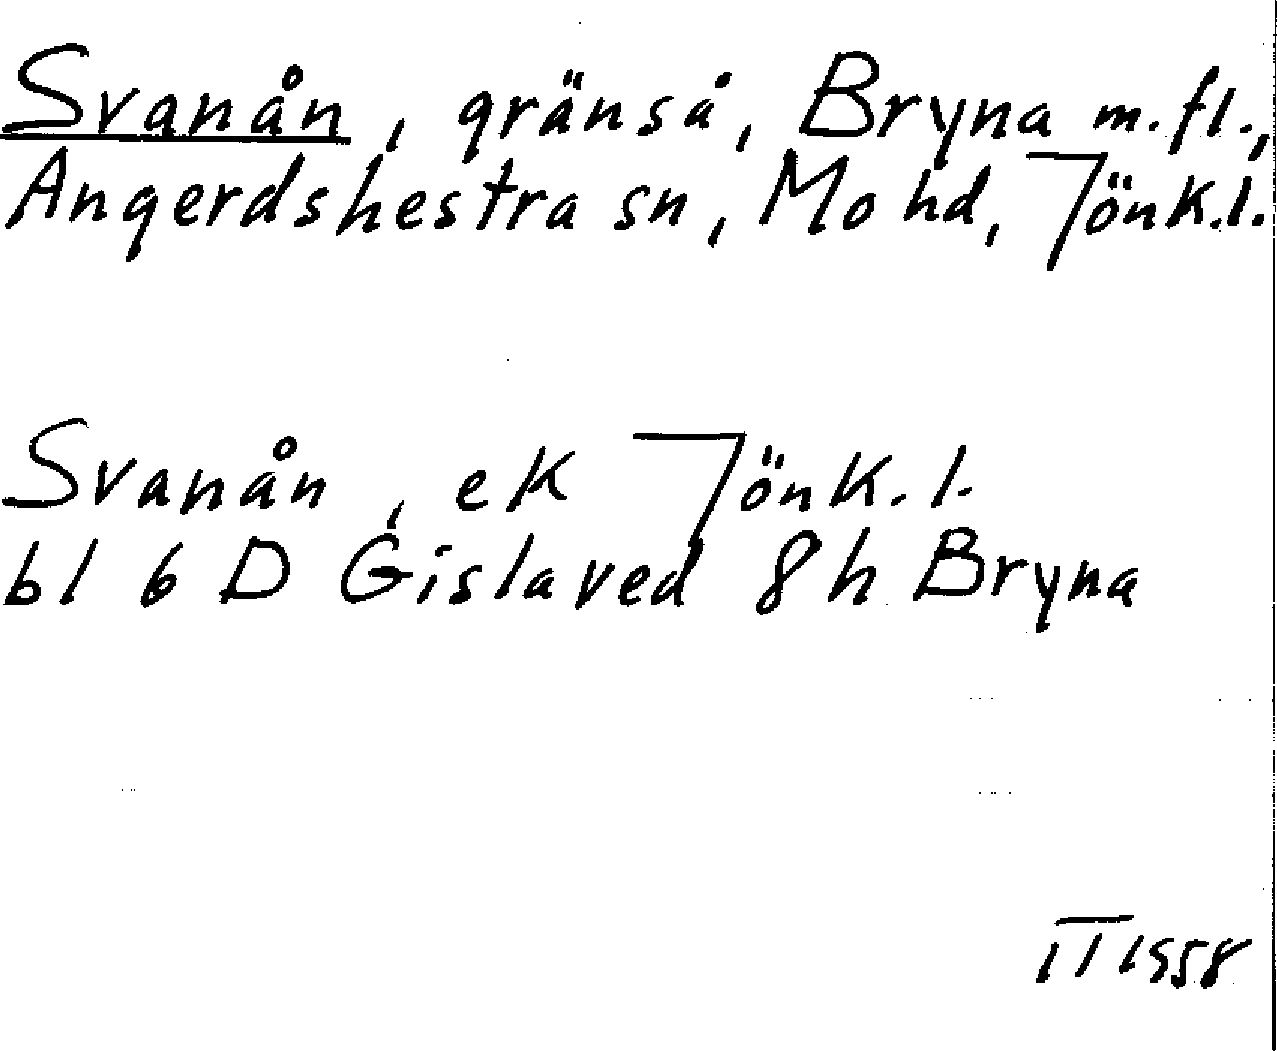 Svanån, gränså, Bryna m.fl.,
Angerdshestra sn, Mo hd, Jönk.l.
Svanån, ek Jönk.l.
bl 6 D Gislaved 8 h Bryna
IT 1958